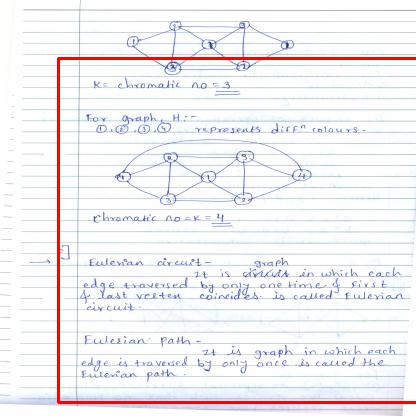 K = chromatic no = 3
For graph, H:-
①,②,③,④ represents diffⁿ colours.
chromatic no = K = 4
Eulerian circuit - graph
It is in which each
edge traversed by only one time & first
& last vertex coincides is called Eulerian
circuit.
Eulerian Path -
It is graph in which each
edge is traversed by only once is called the
Eulerian path.